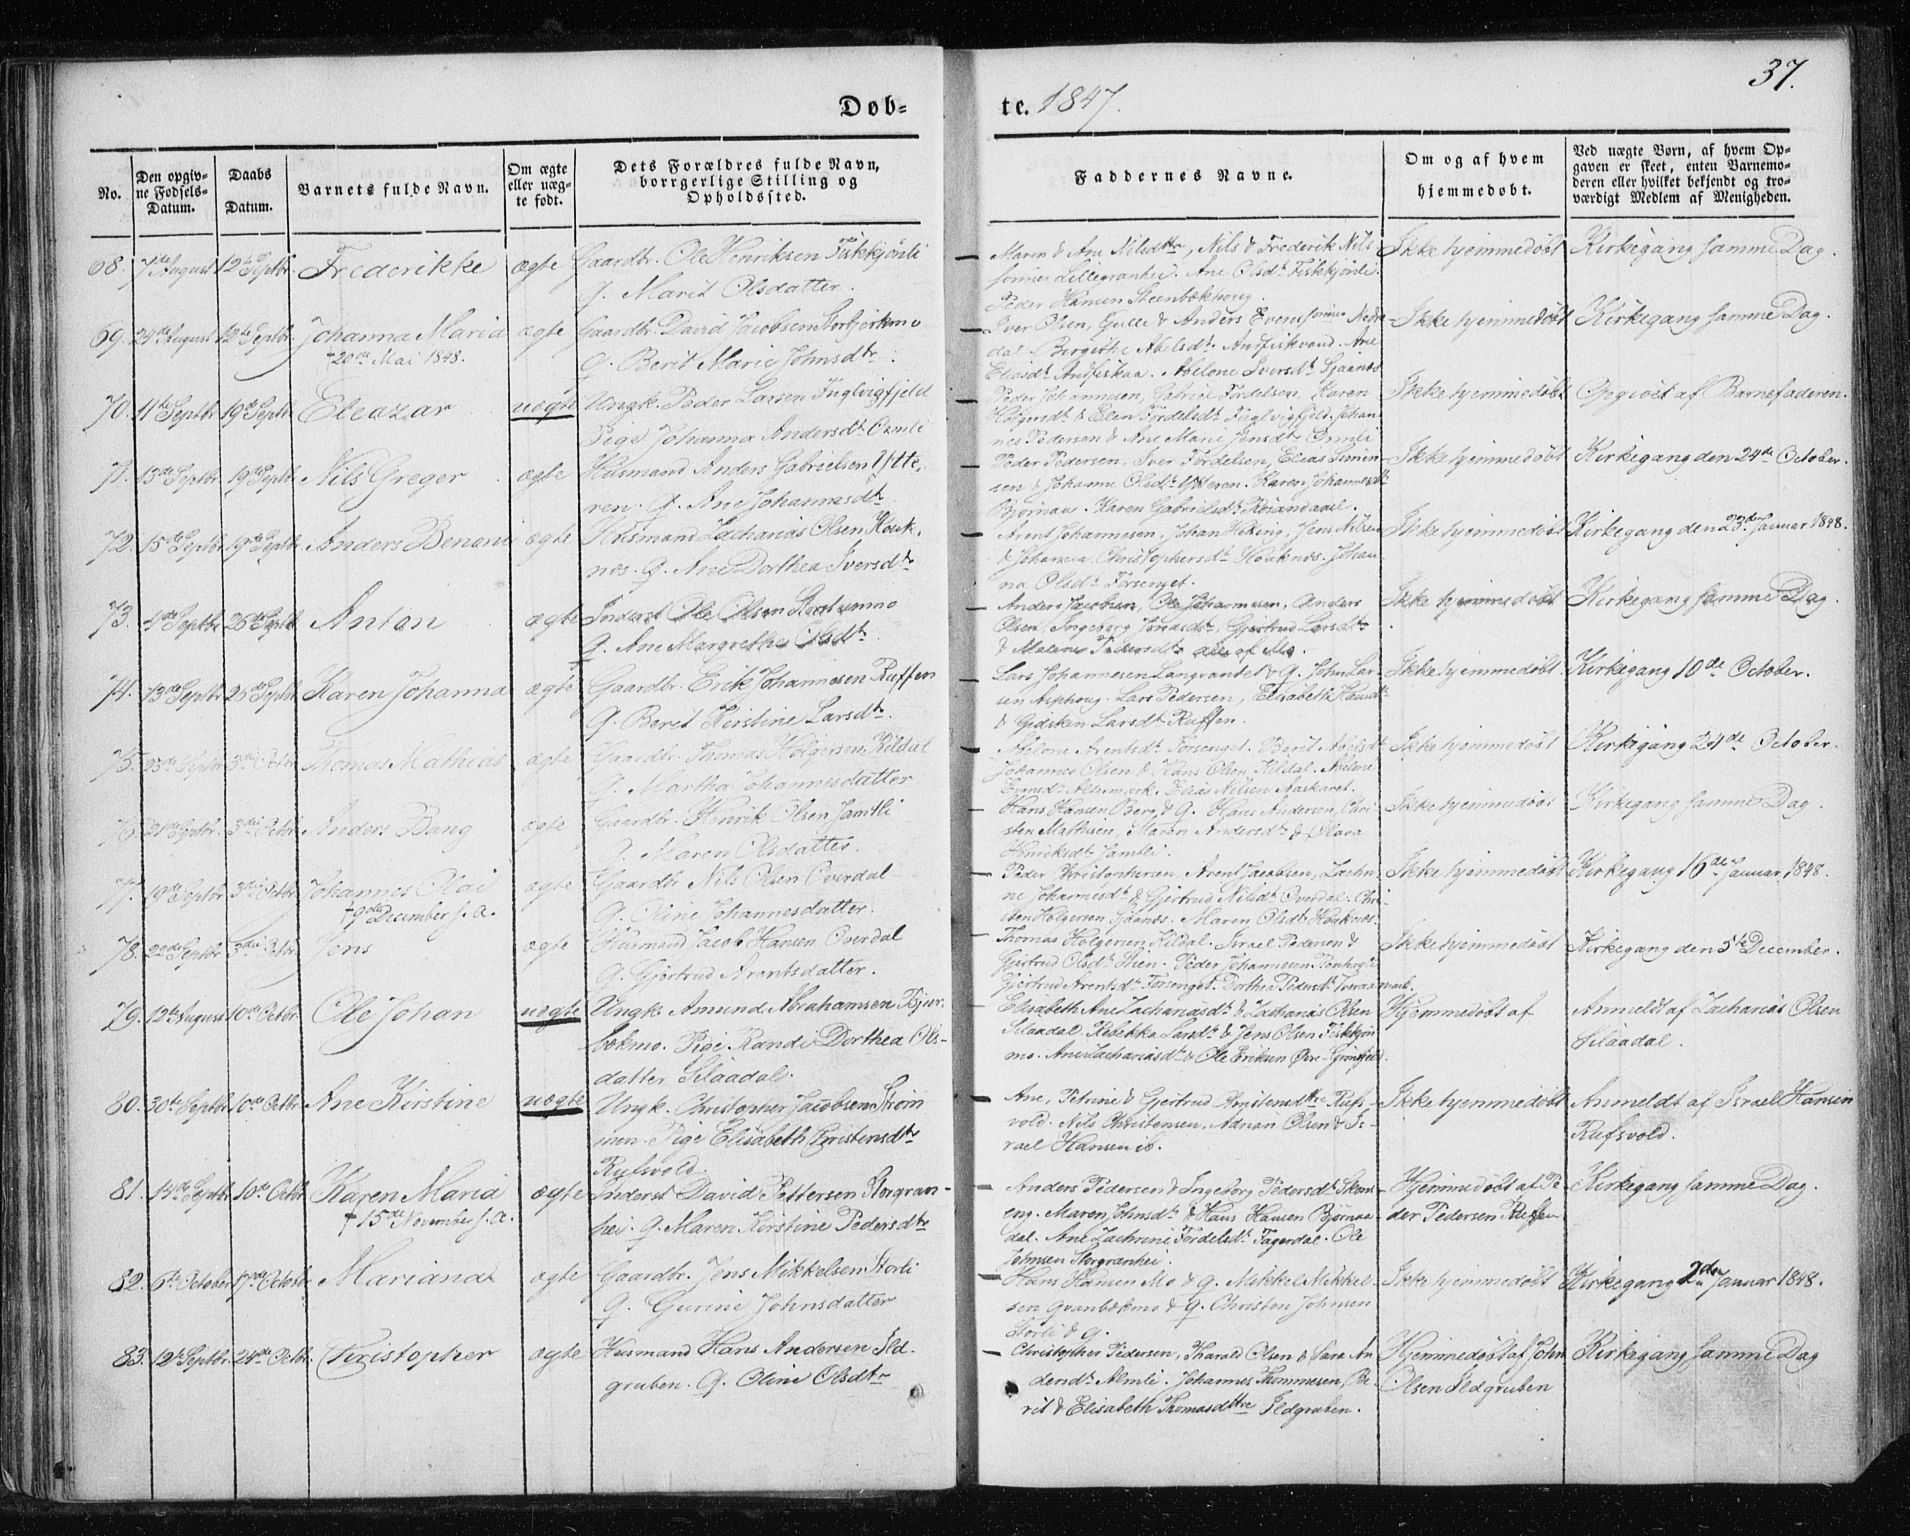 37.
Døb-
te. 1847.
No.
Den opgiv-
ne Fødsels-
Datum.
Daabs
Datum.
Barnets fulde Navn.
Om ægte
eller uæg-
te født.
Dets Forældres fulde Navn,
borrgerlige Stilling og
Opholdssted.
Faddernes Navne.
Om og af hvem
hjemmedøbt.
Ved uægte Børn, af hvem Op-
gaven er skeet, enten Barnemo-
deren eller hvilket bekjendt og tro-
værdigt Medlem af Menigheden.
68. 7de August 12te Septbr. Frederikke ægte Gaardbr. Ole Henriksen Fiskkjønli
G. Marit Olsdatter.
Maren & Ane Nilsdttr, Nils & Frederik Nils-
sønner Lillegranhei. Ane Olsdtr Fiskkjønli.
Peder Hansen Steenbækhoug.
Ikke hjemmedøbt Kirkegang samme Dag.
69. 24de August 12te Septbr. Johanna Maria
+ 20de Mai 1848.
ægte Gaardbr. David Jacobsen
G. Berit Marie Johnsdtr.
Iver Olsen, Gulle & Anders Evenssønner Nedre-
dal. Bergithe Abelsdtr Andfiskvand. Ane
Eliasdtr Andfiskaa. Abelone Iversdtr Sjaanes
Ikke hjemmedøbt Kirkegang samme Dag.
70. 11te Septbr 19de Septbr Eleazar uægte Ungk. Peder Larsen Fuglvigfjeld
Pige Johanna Andersdtr Ormli
Peder Johannesen, Gabriel Fordelsen, Karen
Holgersdtr & Elen Fordelsdtr Fuglvigfjeld. Johan-
nes Pedersen & Ane Marie Jensdtr Ormli
Ikke hjemmedøbt Opgivet af Barnefaderen.
71. 13de Septbr 19de Septbr Nils Greger ægte Husmand Anders Gabrielsen Ytte-
ren. G. Ane Johannesdtr.
Peder Pedersen, Iver Fordelsen, Elias Simon-
sen & Johanna Olsdtr Ytteren. Karen Johannesdtr
Bjørnaa. Karen Gabrielsdtr Røsandaael.
Ikke hjemmedøbt Kirkegang den 24de October.
72. 15de Septbr 19de Septbr Anders Benoni ægte Husmand Zacharias Olsen Houk-
nes. G. Ane Dorthea Iversdtr
Arent Johannesen, Johan Heking, Jens Nilsen
& Johanna Christophersdtr Houknes. Johan-
na Olsdtr Forsenget.
Ikke hjemmedøbt Kirkegang den 23de Januar 1848.
73. 4de Septbr 26de Septbr Anton ægte Inderst Ole Olsen
G. Ane Margrethe Olsdtr.
Anders Jacobsen, Ole Johannesen, Anders
Olsen, Ingeborg Jonasdtr, Gjertrud Larsdtr
& Malene Pedersdtr alle af Mo.
Ikke hjemmedøbt Kirkegang samme Dag.
74. 13de Septbr 26de Septbr Karen Johanna ægte Gaardbr. Erik Johannesen Ruffen
G. Berit Kirstine Larsdtr.
Lars Johannesen Langvandet & G. John Lar-
sen Asphoug. Lars Pedersen, Elisabeth Hansdtr
& Gidsken Larsdtr Ruffen.
Ikke hjemmedøbt Kirkegang 10de October.
75. 23de Septbr 3die Octbr. Thomas Mathias ægte Gaardbr. Thomas Holgersen Kildal
G. Martha Johannesdatter
Abelone Arentsdtr Forsenget. Berit Abelsdtr
Johannes Olsen & Hans Olsen Kildal. Abelone
Evensdtr Altermark. Elias Nilsen Aaskaret.
Ikke hjemmedøbt Kirkegang 24de October.
76. Septbr. 3die Octbr. Anders Bang ægte Gaardbr. Henrik Olsen Jamtli
G. Maren Olsdatter.
Hans Hansen Berg & G. Hans Andersen, Chri-
sten Mathisen, Maren Andersdtr & Olava
Henriksdtr Jamtli.
Ikke hjemmedøbt Kirkegang samme Dag.
77. 19de Septbr 3die Octbr. Johannes Olai
+ 9de December s. A.
ægte Gaardbr Nils Olsen Overdal
G. Oline Johannesdatter.
Peder Christophersen, Arent Jacobsen, Zachri-
ne Johannesdtr & Gjertrud Nilsdtr Overdal. Chri-
sten Holgersen Sjaanes. Maren Olsdtr Houknes.
Ikke hjemmedøbt Kirkegang 16de Januar 1848.
78. 22de Septbr 3die Octbr. Jens ægte Husmand Jacob Hansen Overdal
G. Gjertrud Arentsdatter.
Thomas Holgersen Kildal. Israel Pedersen &
Gjertrud Olsdtr Steen. Peder Johannesen
Gjertrud Arentsdtr Forsenget. Dorthea Pedersdtr
Ikke hjemmedøbt Kirkegang den 5te December.
79. 12te August 10de Octbr. Ole Johan uægte Ungk. Amund Abrahamsen Bjur-
bækmo. Pige Randi Dorthea Ols-
datter Silaadal.
Elisabeth Ane Zachariasdtr & Zacharias Olsen
Silaadal. Rebekka Larsdtr & Jens Olsen Fiskkjøn-
mo. Ane Zachariasdtr & Ole Eriksen Øvre-Grønfjeld.
Hjemmedøbt af Anmeldt af Zacharias Olsen
Silaadal.
80. 30te Septbr 10de Octbr. Ane Kirstine uægte Ungk. Christopher Jacobsen Strøm-
men. Pige Elisabeth Christensdtr
Rufsvold.
Ane, Petrine & Gjertrud Christensdttre Rufs-
vold. Nils Christensen, Adrian Olsen & Is-
rael Hansen ib.
Ikke hjemmedøbt Anmeldt af Israel Hansen
Rufsvold.
81. 14de Septbr 10de Octbr Karen Maria
+ 15de November s. A.
ægte Inderst David Pettersen Storgran-
hei. G. Maren Kirstine Pedersdtr
Anders Pedersen & Ingeborg Pedersdtr
eng. Maren Johnsdtr & Hans Hansen Bjørnaa-
dal. Ane Zachrine Fordelsdtr Fagerdal. Ole
Johnsen Storgranhei.
Hjemmedøbt af Pe-
der Pedersen Ruffen
Kirkegang samme Dag.
82. 6te October 17de October Mariana ægte Gaardbr. Jens Mikkelsen Storli
G. Gurine Johnsdatter
Hans Hansen Mo & G. Mikkel Mikkel-
sen Gvanbækmo & G. Christen Johnsen
Storli & G.
Ikke hjemmedøbt Kirkegang 2den Januar 1848.
83. 12te Septbr. 24de Octbr. Christopher ægte Husmand Hans Andersen Ild-
gruben. G. Oline Olsdtr
Christopher Pedersen, Harald Olsen & Sara An-
dersdtr Almli. Johannes Thommesen, Be-
rit & Elisabeth Thomasdttre Ildgruben.
Hjemmedøbt af John
Olsen Ildgruben
Kirkegang samme Dag